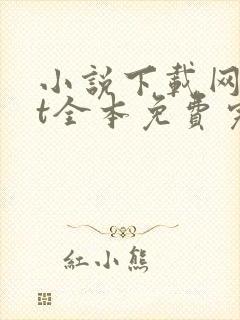 小説下載网
t全本免費
紅小熊